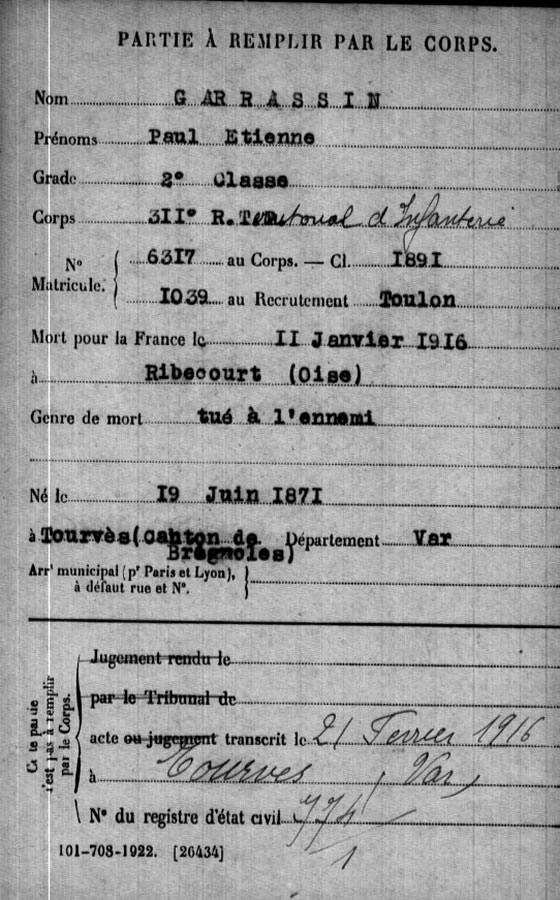 PARTIE À REMPLIR PAR LE CORPS.
Nom GARRASSIN
Prénoms Paul Etienne
Grade 2° Classe
Corps 311° R. Territorial d'Infanterie
N° Matricule. 6317 au Corps. — Cl. 1891
1039 au Recrutement Toulon
Mort pour la France le 11 Janvier 1916
à Ribecourt (Oise)
Genre de mort tué à l'ennemi
Né le 19 Juin 1871
à Tourvès (Canton de Brégnoles) Département Var
Arrt municipal (pr Paris et Lyon),
à défaut rue et N°.
Jugement rendu le
par le Tribunal de
acte ou jugement transcrit le 21 Fevrier 1916
à Tourves (Var)
N° du registre d'état civil
Cette partie
n'est pas à remplir
par le Corps.
101-708-1922. [26434]